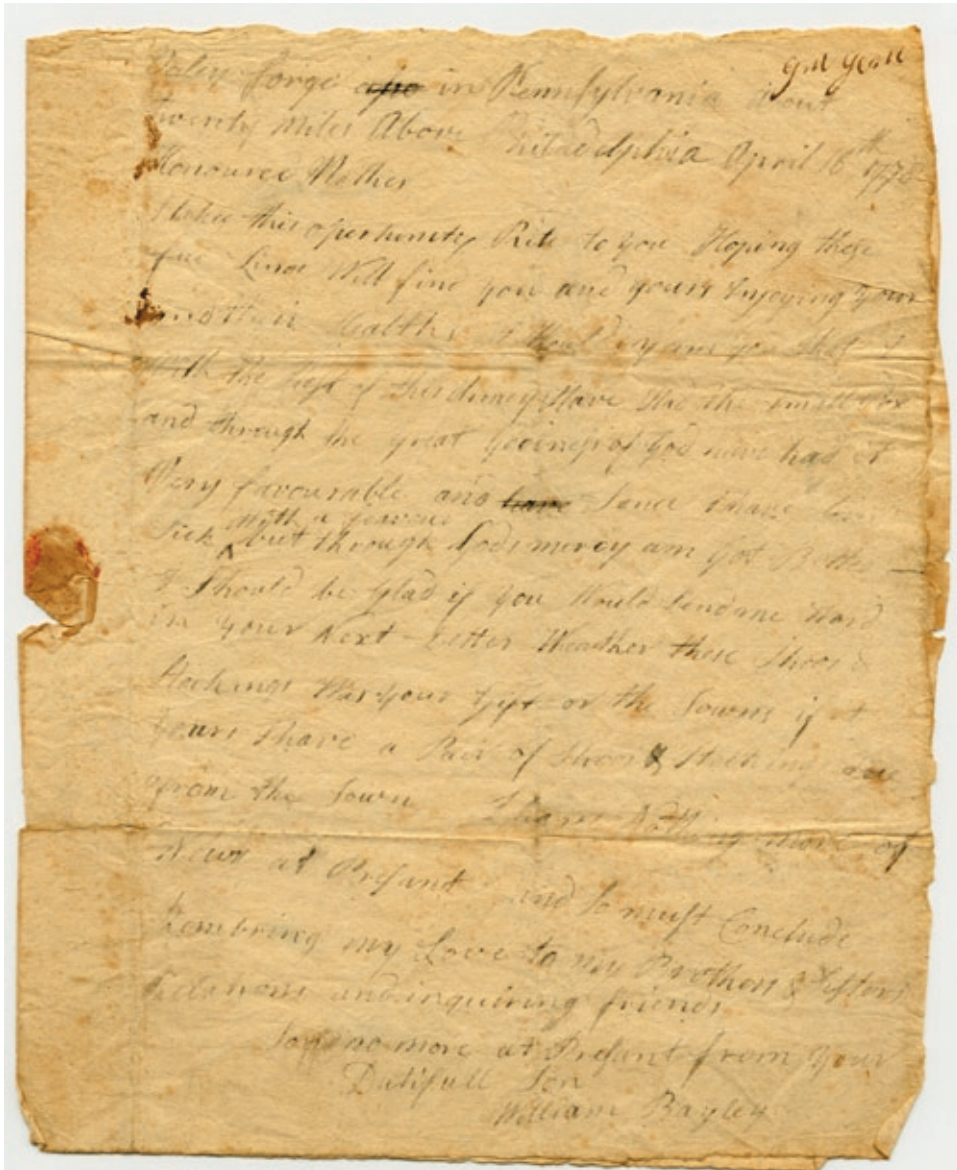 Valey forge in Pennsylvania about
twenty Miles Above Philadelphia April 16th 1778
Honoured Mother
I take this opertunity Rite to you Hoping these
few Lines Will find you and yours Enjoying your
Health I you that I
With the Rest of this have had the small Pox
and through the great Goodness of God have had it
Very favourable and have Sence I have bin
with a feavour
Sick but through Gods mercy am Got Better
I Should be Glad if you Would Send me Word
in your Next Letter Wheather these Shoos &
Stockings Was your Gift or the Towns if
yours I have a Pair of Shoos & Stockings due
from the Town I have Nothing more of
News at Presant and So must Conclude
Rembring my Love to my Brothers & Sisters
Relations and inquiring friends
So no more at Presant from your
Dutifull Son
William Bayley